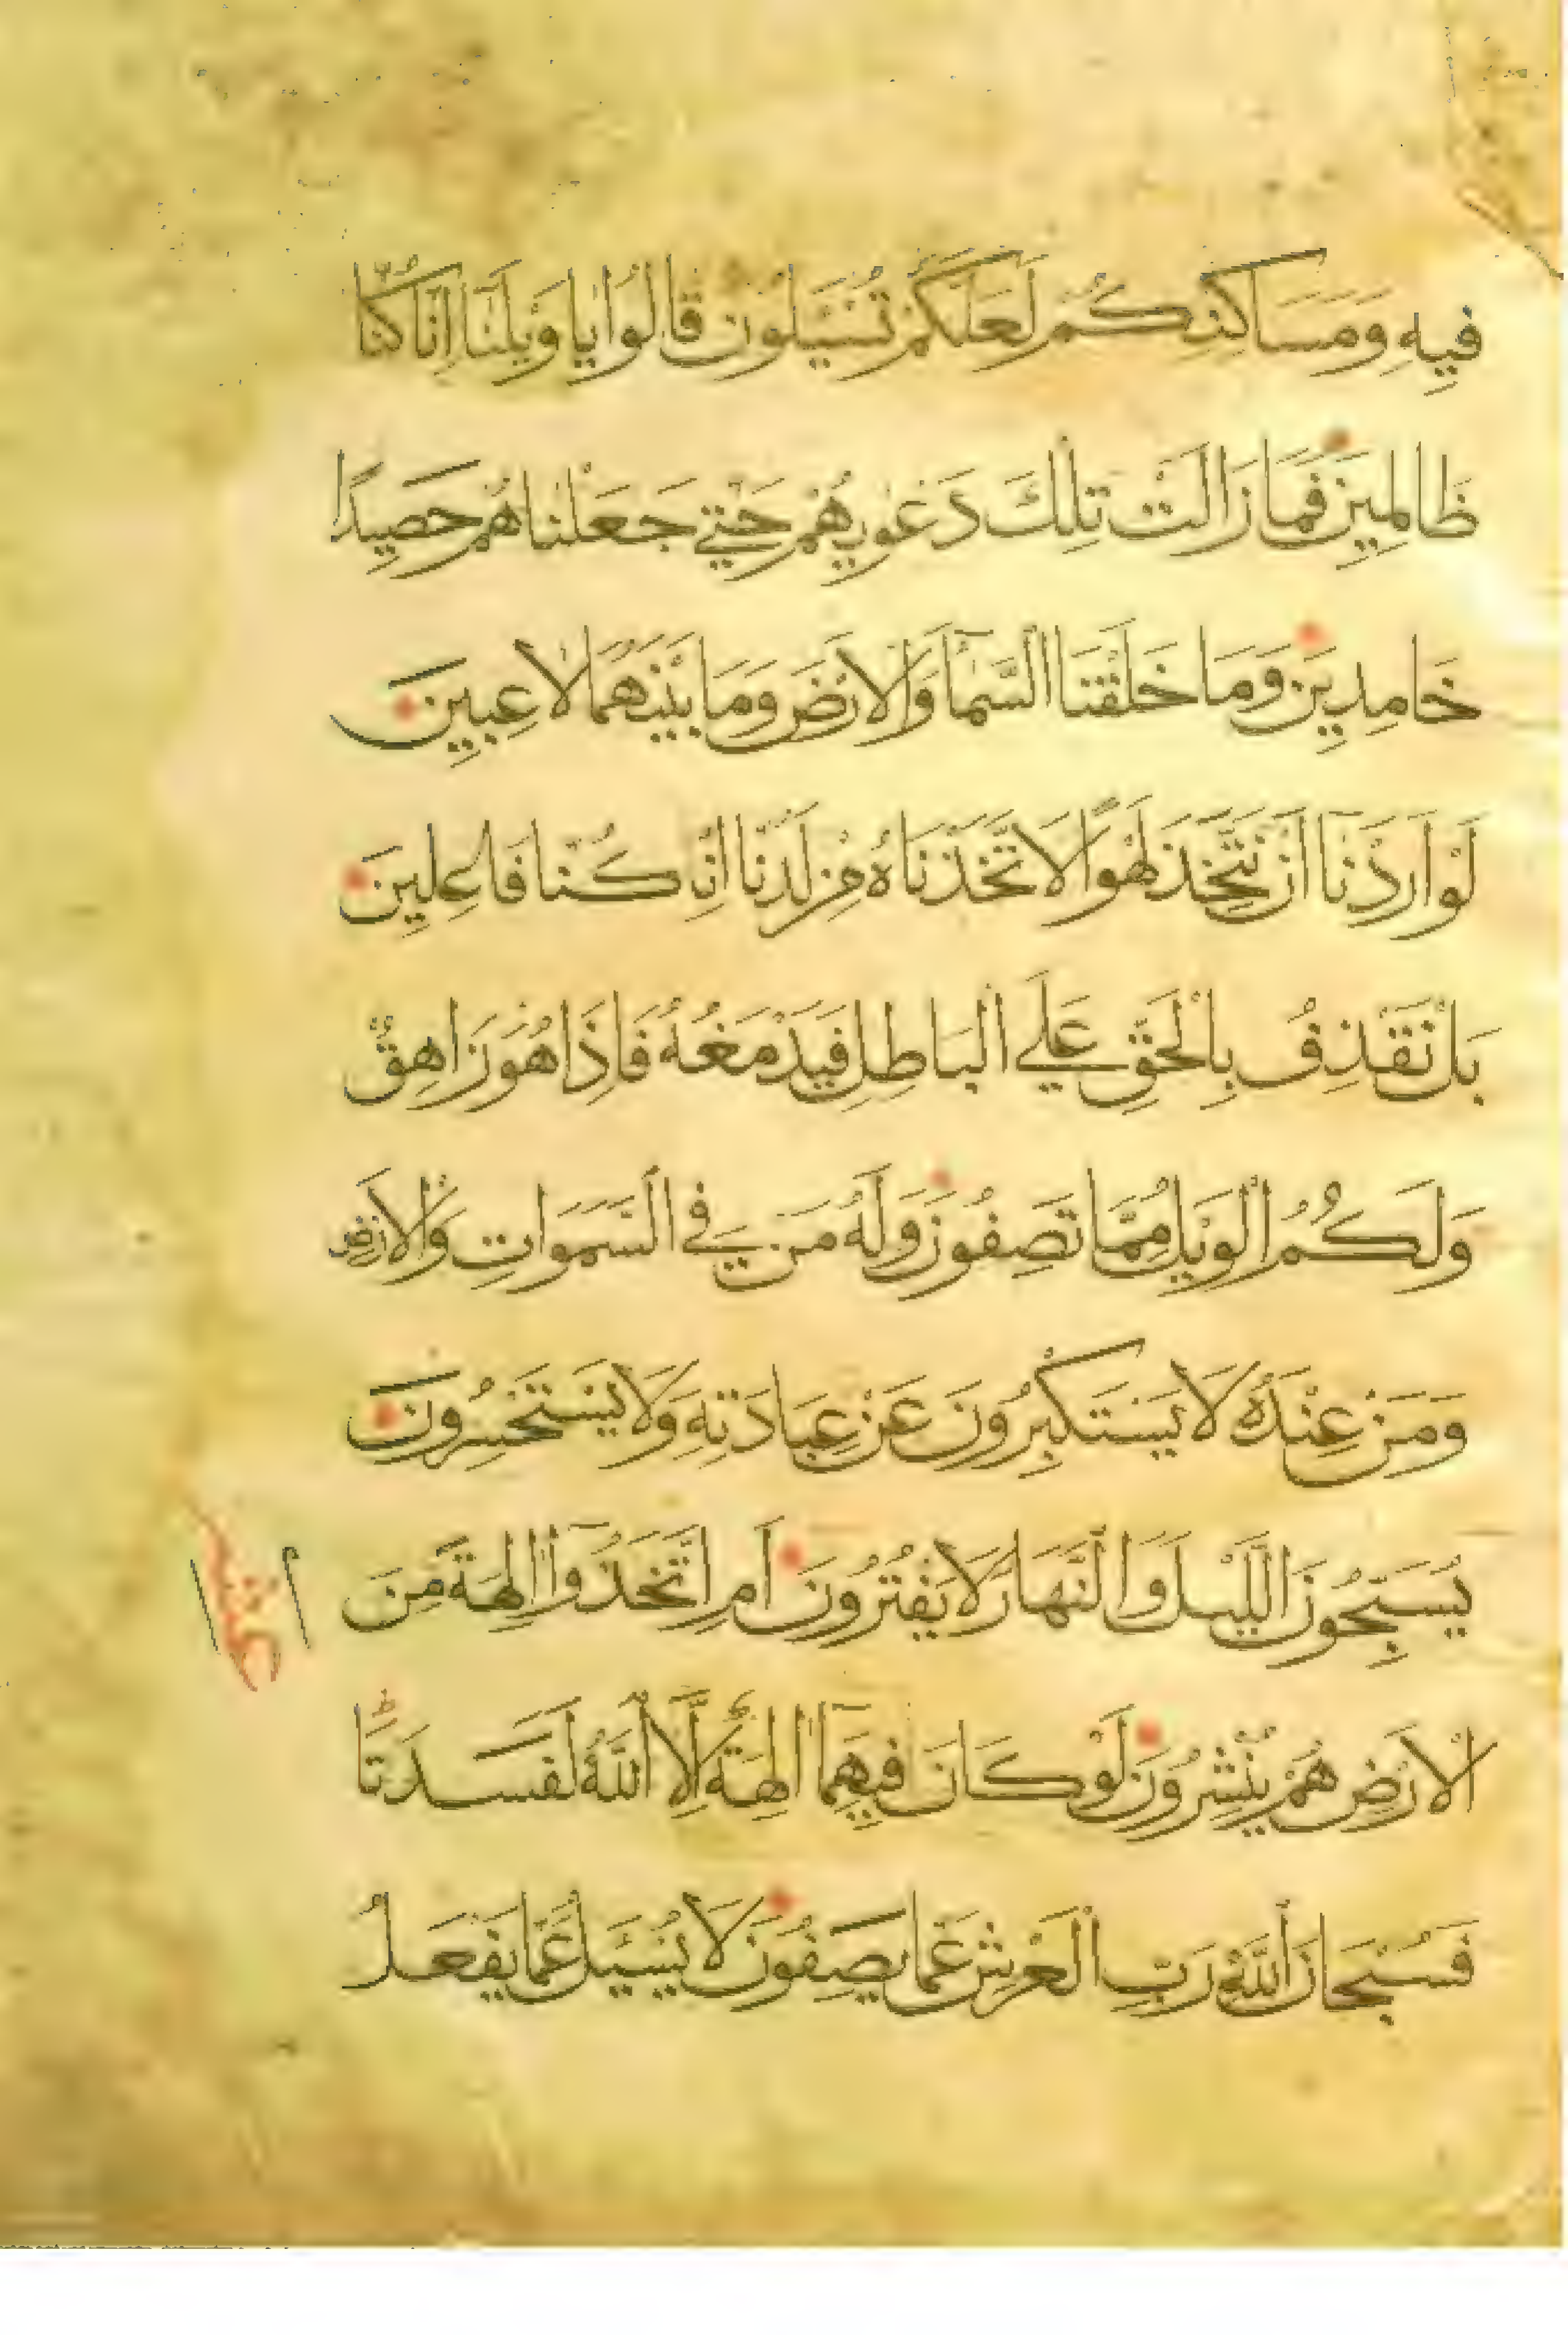 فِيهِ وَمَسَاكِنِكُمْ لَعَلَّكُمْ تُسْـَٔلُونَ قَالُوا يَا وَيْلَنَا اِنَّا كُنَّا
ظَالِمِينَ فَمَا زَالَتْ تِلْكَ دَعْوٰيهُمْ حَتّٰي جَعَلْنَاهُمْ حَصِيدًا
خَامِدِينَ وَمَا خَلَقْنَا السَّمَآ وَالْاَرْضَ وَمَا بَيْنَهُمَا لَاعِبِينَ
لَوْ اَرَدْنَآ اَنْ نَتَّخِذَ لَهْوًا لَاتَّخَذْنَاهُ مِنْ لَدُنَّا اِنْ كُنَّا فَاعِلِينَ
بَلْ نَقْذِفُ بِالْحَقِّ عَلَي الْبَاطِلِ فَيَدْمَغُهُ فَاِذَا هُوَ زَاهِقٌ
وَلَكُمُ الْوَيْلُ مِمَّا تَصِفُونَ وَلَهُ مَنْ فِي السَّمَوَاتِ وَالْاَرْضِ
وَمَنْ عِنْدَهُ لَا يَسْتَكْبِرُونَ عَنْ عِبَادَتِهِ وَلَا يَسْتَحْسِرُونَ
يُسَبِّحُونَ اللَّيْلَ وَالنَّهَارَ لَا يَفْتُرُونَ اَمِ اتَّخَذُوٓا اٰلِهَةً مِنَ
عشر
الْاَرْضِ هُمْ يُنْشِرُونَ لَوْ كَانَ فِيهِمَآ اٰلِهَةٌ اِلَّا اللّٰهُ لَفَسَدَتَا
فَسُبْحَانَ اللّٰهِ رَبِّ الْعَرْشِ عَمَّا يَصِفُونَ لَا يُسْـَٔلُ عَمَّا يَفْعَلُ